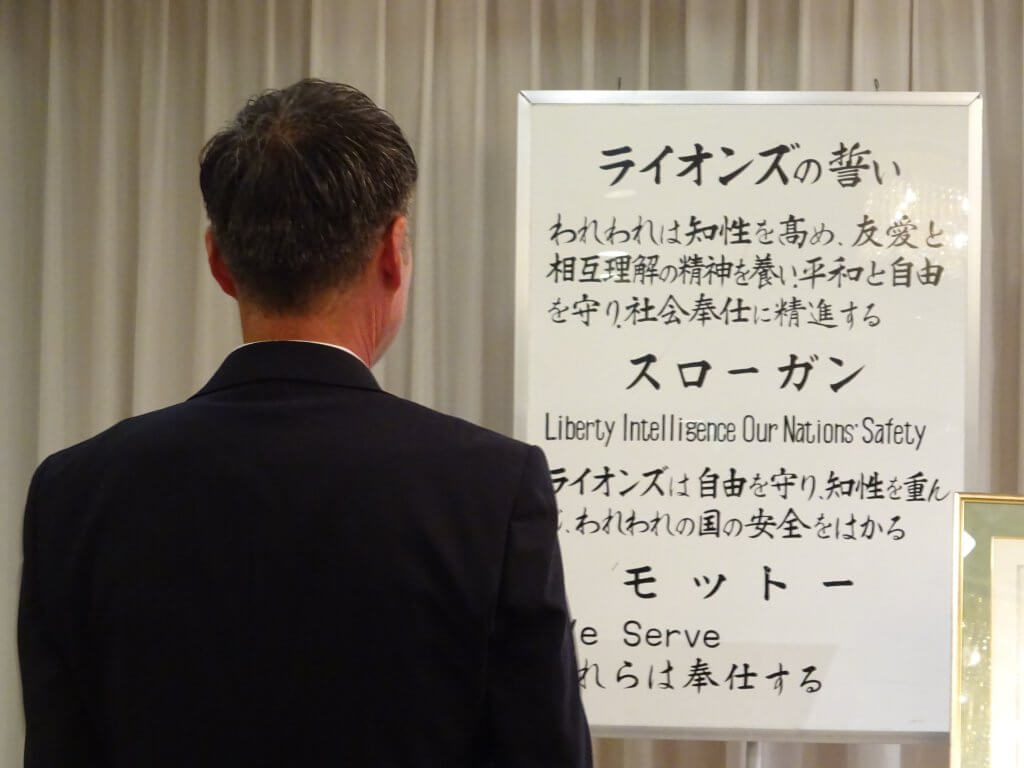 ライオンズの誓い
われわれは知性を高め、友愛と
相互理解の精神を養い、平和と自由
を守り、社会奉仕に精進する
スローガン
Liberty Intelligence Our Nations' Safety
ライオンズは自由を守り、知性を重ん
、われわれの国の安全をはかる
モットー
e Serve
れらは奉仕する